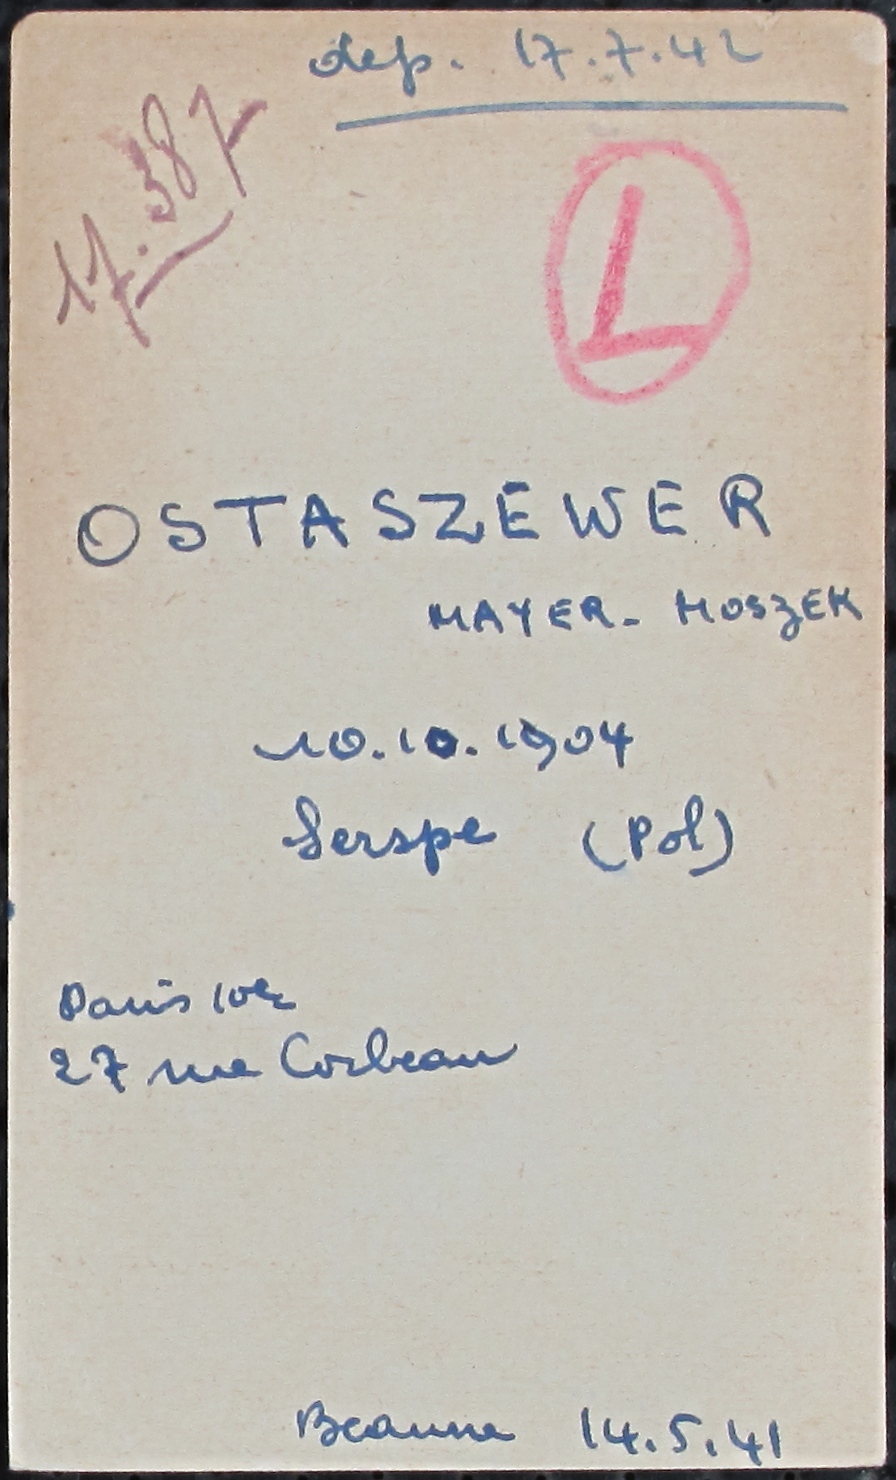 dep. 17.7.42
17.387
L
OSTASZEWER
MAYER- MOSZEK
10.10.1904
Serspe (Pol)
Paris 10e
27 rue Corbeau
Beaune 14.5.41